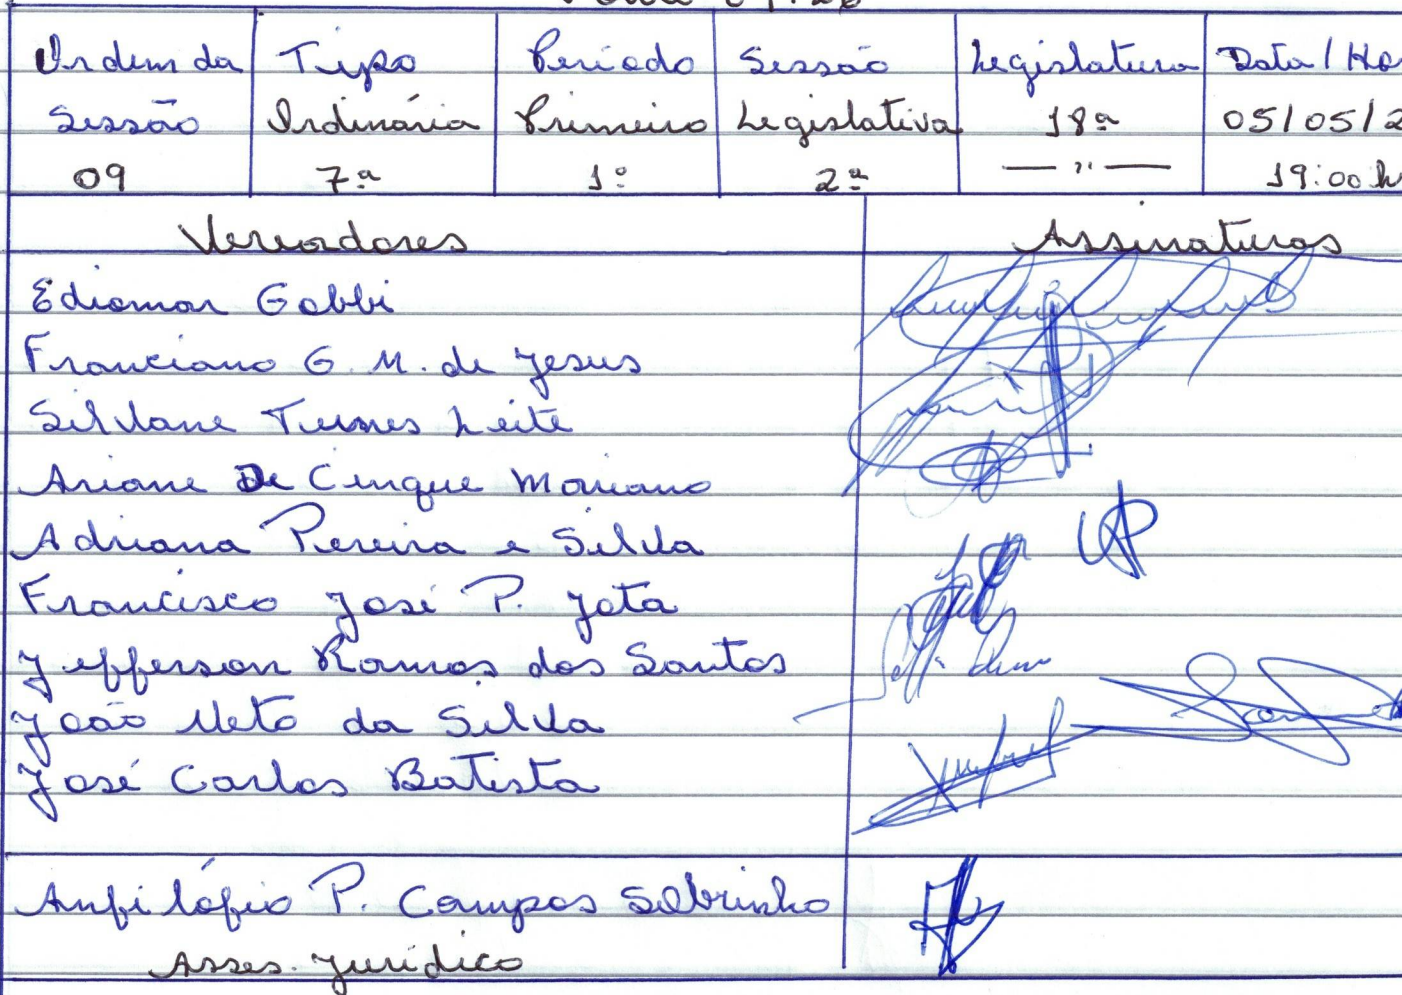 Ordem da Tipo Período Sessão Legislatura Data / Ho
Sessão Ordinária Primeiro Legislativa 18ª 05/05/2
09 7ª 1º 2ª — " — 19:00 h
Vereadores Assinaturas
Ediomar Gobbi
Franciano G. M. de Jesus
Silvane Tunes Leite
Ariane De Cinque Mariano
Adriana Pereira e Silva
Francisco José P. Jota
Jefferson Ramos dos Santos
João Neto da Silva
José Carlos Batista
Anfilófio P. Campos Sobrinho
Asses. Jurídico